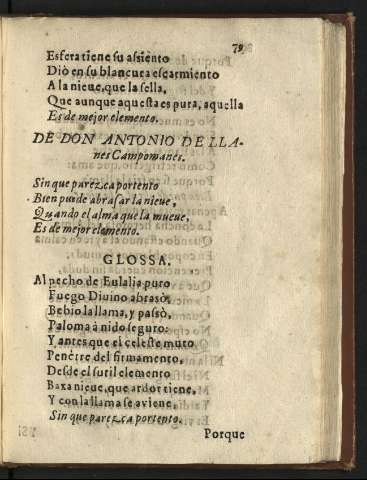 79
Esfera tiene su assiento
Diò en su blancura escarmiento
A la nieue, que la sella,
Que aunque aquesta es pura, aquella
Es de mejor elemento.
DE DON ANTONIO DE LLA-
nes Campomanes.
Sin que parezca portento
Bien puede abrasar la nieue,
Quando el alma que la mueue,
Es de mejor elemento.
GLOSSA.
Al pecho de Eulalia puro
Fuego Diuino abrasò,
Bebio la llama, y passò,
Paloma à nido seguro.
Y antes que el celeste muro
Penetre del firmamento,
Desde el sutil elemento
Baxa nieue, que ardor tiene,
Y con la llama se auiene,
Sin que parezca portento.
Porque